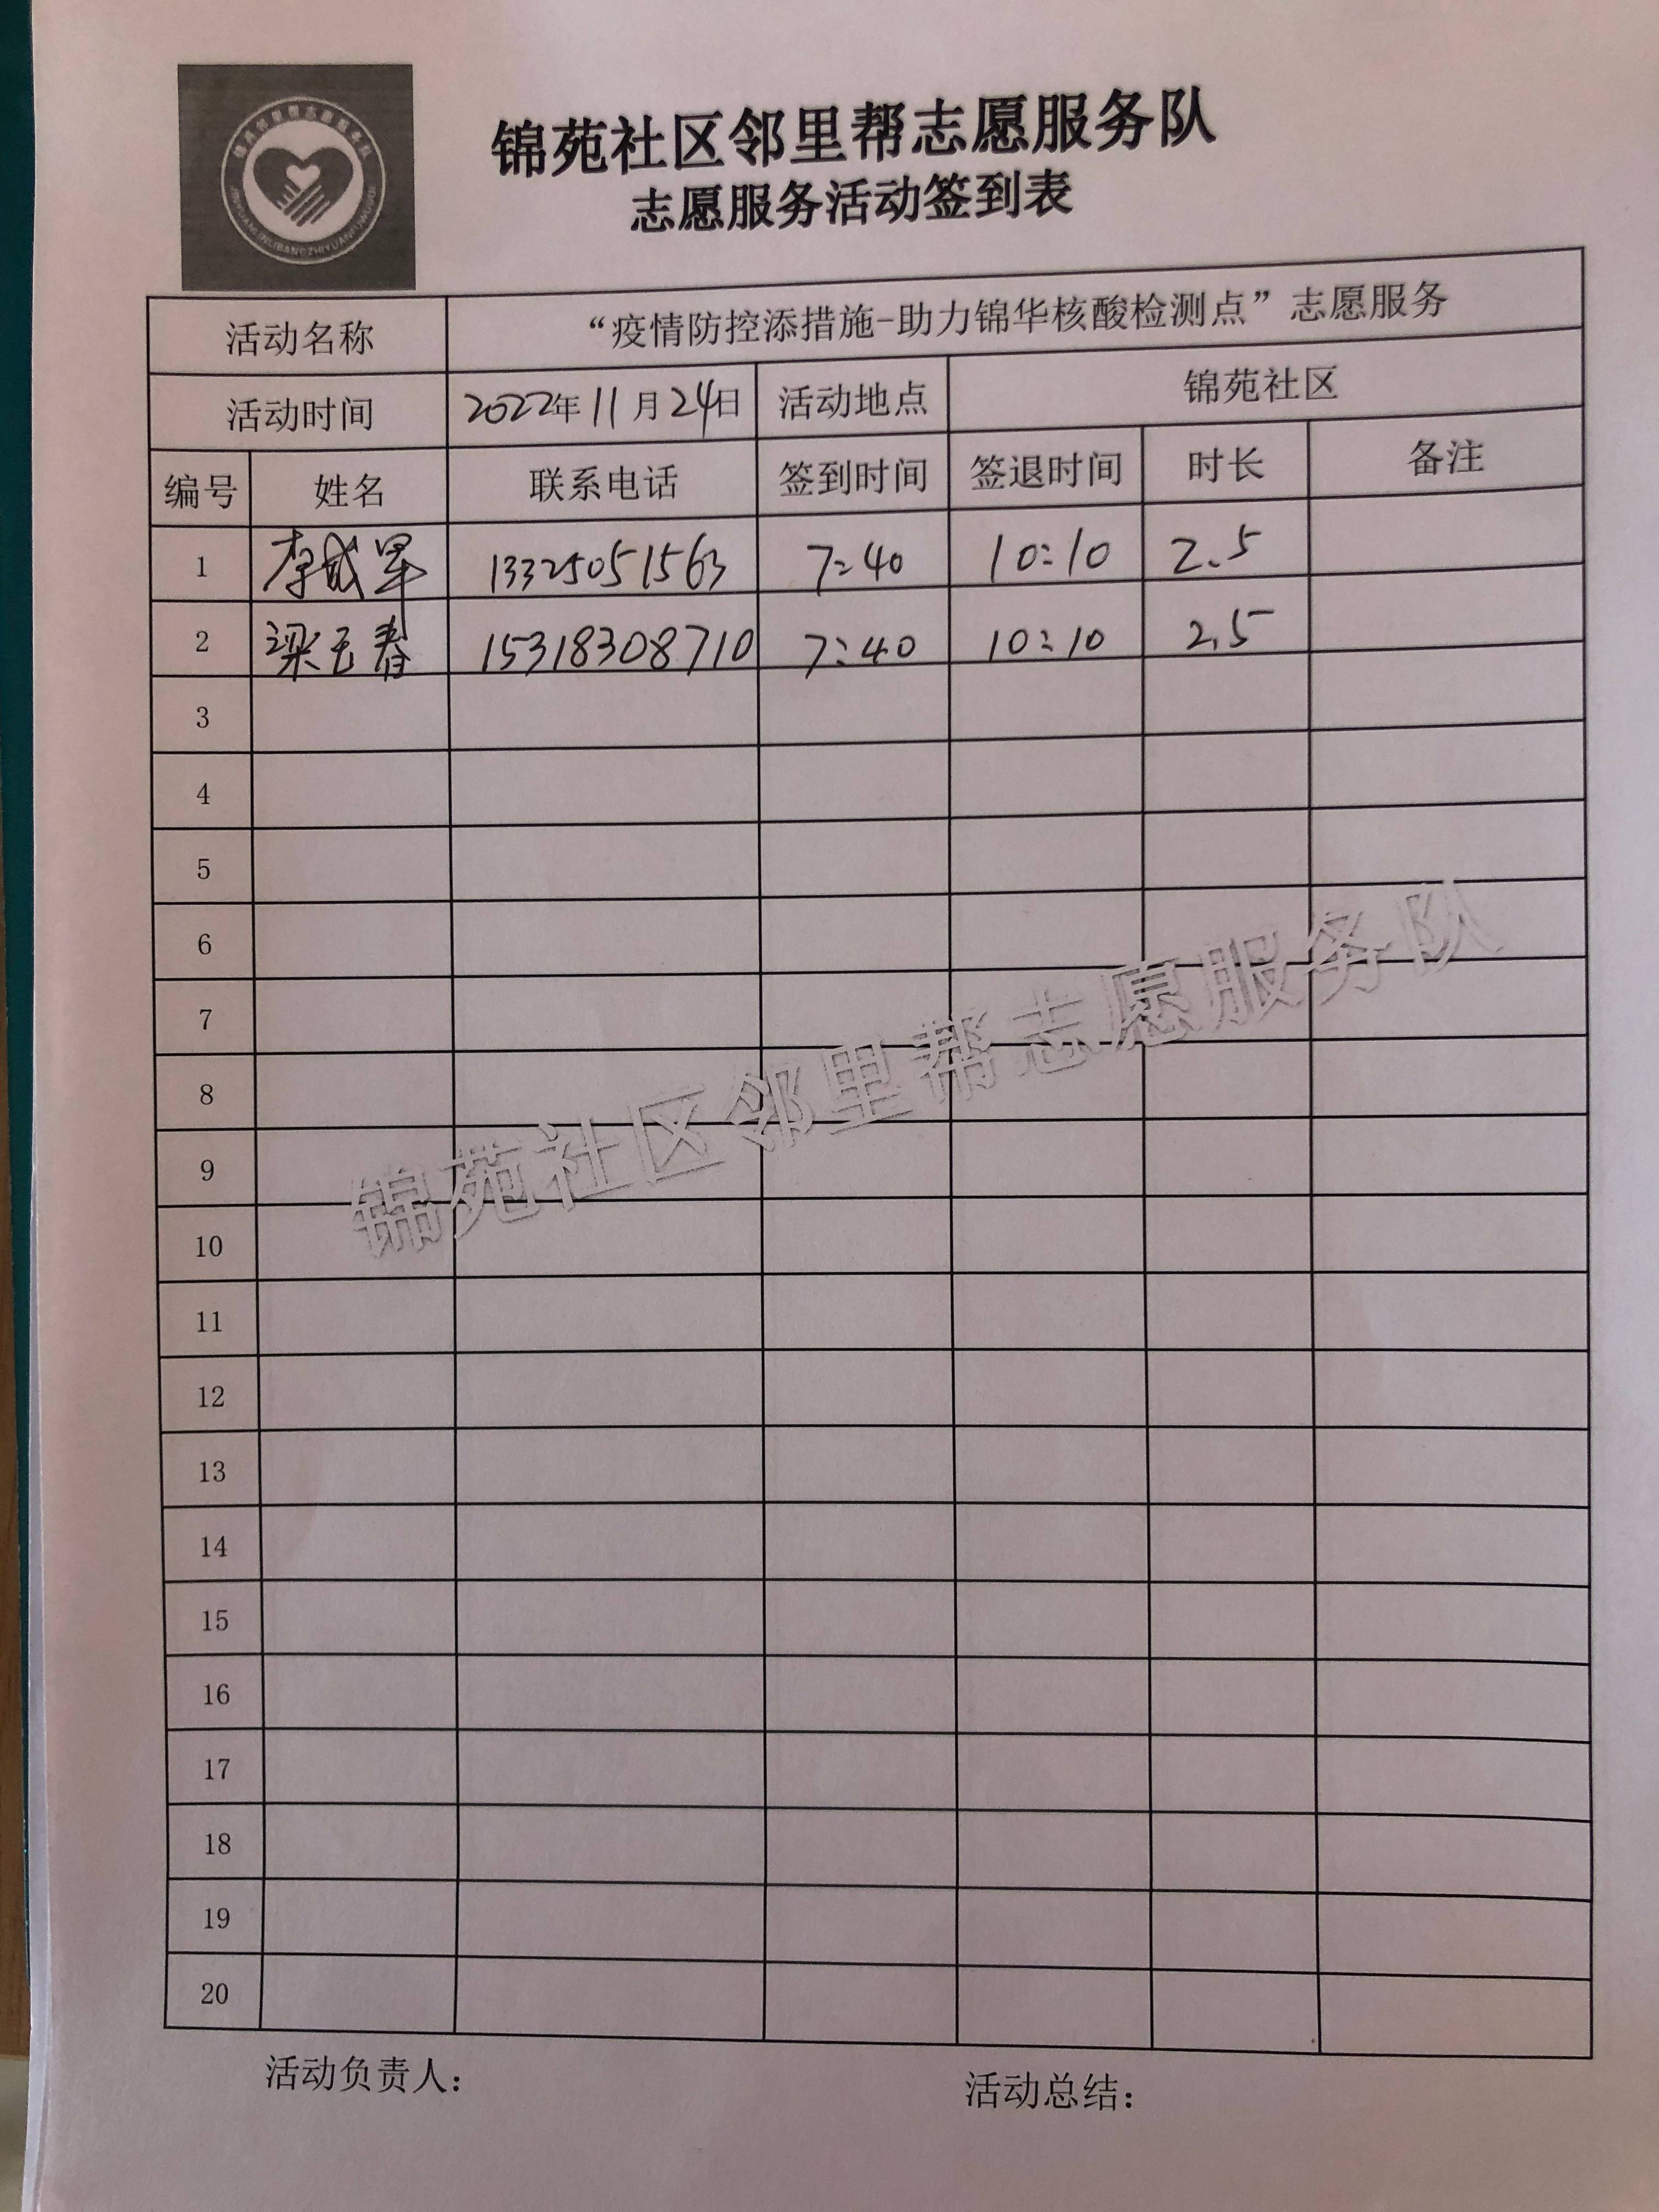 锦苑社区邻里帮志愿服务队
志愿服务活动签到表
活动名称 “疫情防控添措施-助力锦华核酸检测点”志愿服务
活动时间 2022年11月24日 活动地点 锦苑社区
编号 姓名 联系电话 签到时间 签退时间 时长 备注
1 李成军 13325051563 7:40 10:10 2.5
2 梁玉春 15318308710 7:40 10:10 2.5
3
4
5
6
7
8
9
10
11
12
13
14
15
16
17
18
19
20
锦苑社区邻里帮志愿服务队
活动负责人： 活动总结：